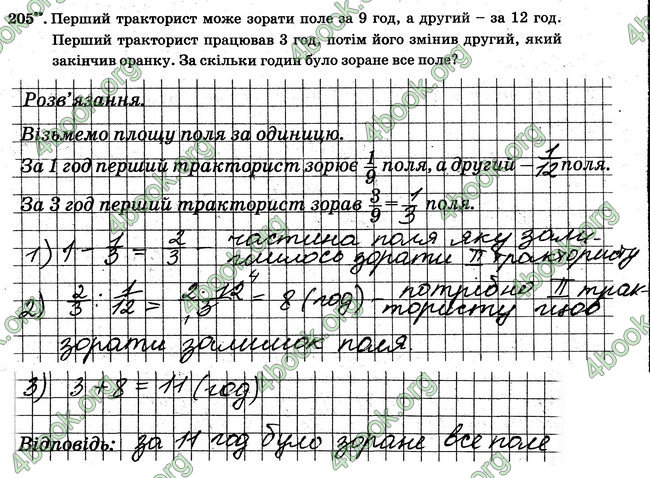 205**. Перший тракторист може зорати поле за 9 год, а другий – за 12 год.
Перший тракторист працював 3 год, потім його змінив другий, який
закінчив оранку. За скільки годин було зоране все поле?
Розв'язання.
Візьмемо площу поля за одиницю.
За 1 год перший тракторист зорює 1/9 поля, а другий – 1/12 поля.
За 3 год перший тракторист зорав 3/9 = 1/3 поля.
1) 1 - 1/3 = 2/3 - частина поля яку зали-
шилось зорати II трактористу
2) 2/3 : 1/12 = 2·12⁴/₁3 = 8 (год) - потрібно II трак-
тористу щоб
зорати залишок поля.
3) 3 + 8 = 11 (год)
Відповідь: за 11 год було зоране все поле
4book.org